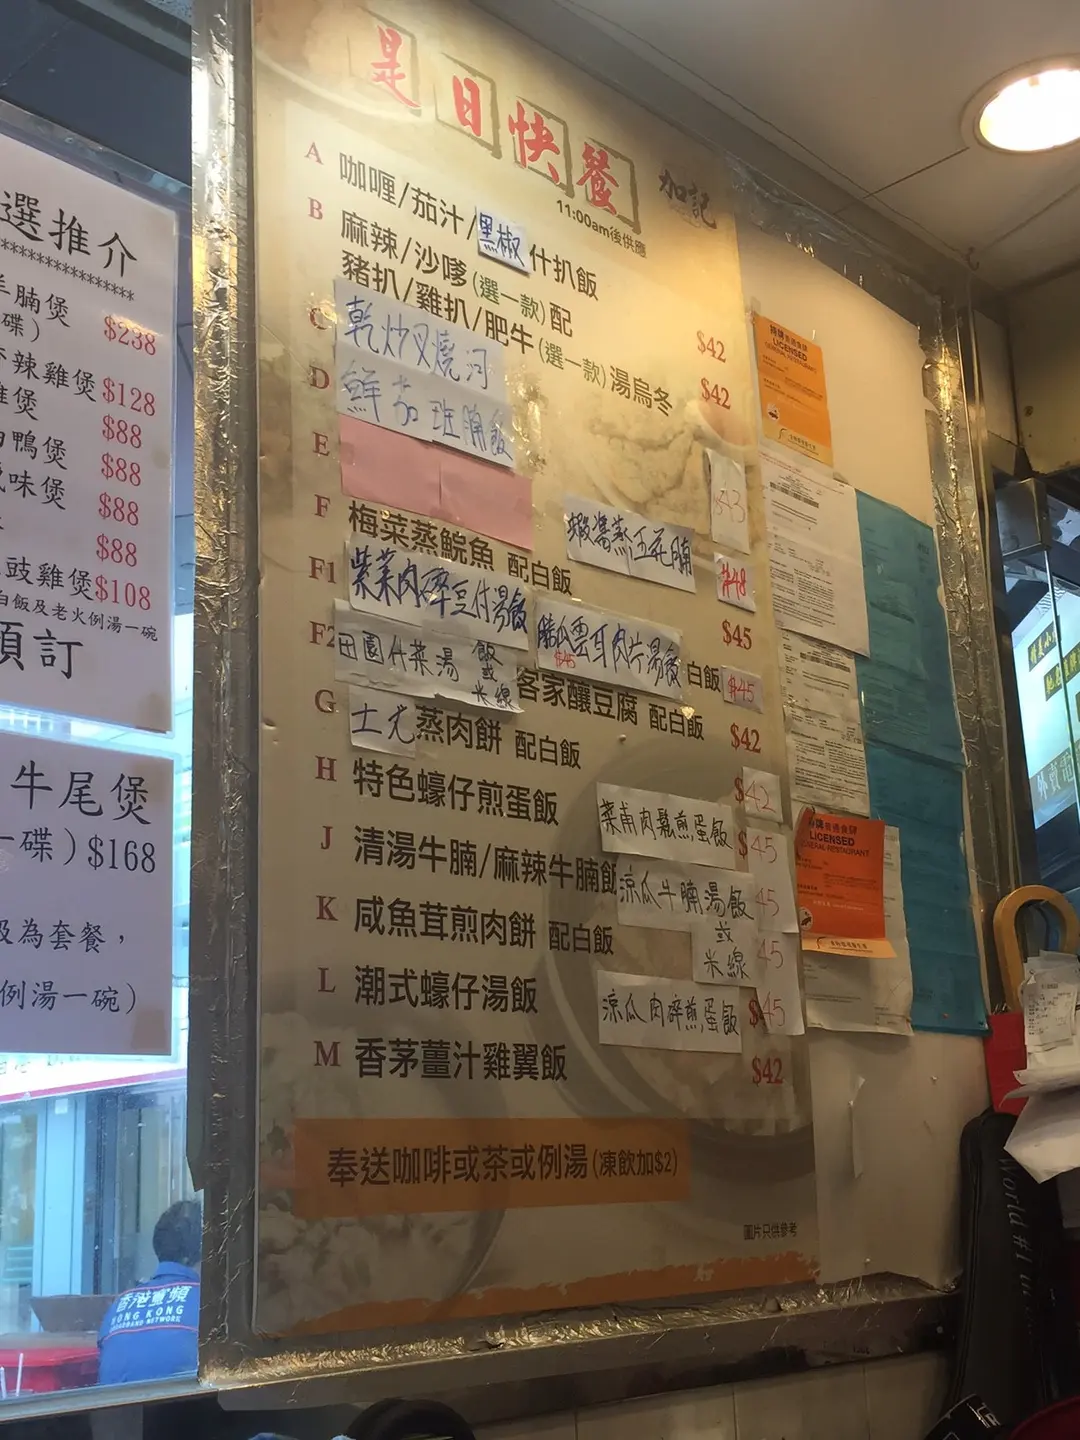 選推介
****************
羊腩煲
碟) $238
辣雞煲 $128
雞煲 $88
鴨煲 $88
味煲 $88
$88
豉雞煲 $108
白飯及老火例湯一碗
預訂
牛尾煲
一碟) $168
級為套餐，
例湯一碗)
是日快餐
加記
11:00am後供應
A 咖喱/茄汁/黑椒什扒飯 $42
B 麻辣/沙嗲(選一款)配
豬扒/雞扒/肥牛(選一款)湯烏冬 $42
C 乾炒叉燒河
D 鮮茄班腩飯 $43
E
蝦醬蒸五花腩 $48
F 梅菜蒸鯇魚 配白飯 $45
F1 紫菜肉碎豆付湯飯
勝瓜雲耳肉片湯飯 $45
白飯 $45
F2 田園什菜湯飯或米線
客家釀豆腐 配白飯 $42
G 土尤蒸肉餅 配白飯 $42
H 特色蠔仔煎蛋飯
菜甫肉鬆煎蛋飯 $45
J 清湯牛腩/麻辣牛腩飯
涼瓜牛腩湯飯 45
或
米線 45
K 咸魚茸煎肉餅 配白飯
L 潮式蠔仔湯飯
涼瓜肉碎煎蛋飯 $45
M 香茅薑汁雞翼飯 $42
奉送咖啡或茶或例湯(凍飲加$2)
圖片只供參考
持牌普通食肆
LICENSED
GENERAL RESTAURANT
持牌普通食肆
LICENSED
GENERAL RESTAURANT
外賣電
World #1
香港寬頻
HONG KONG
BROADBAND NETWORK